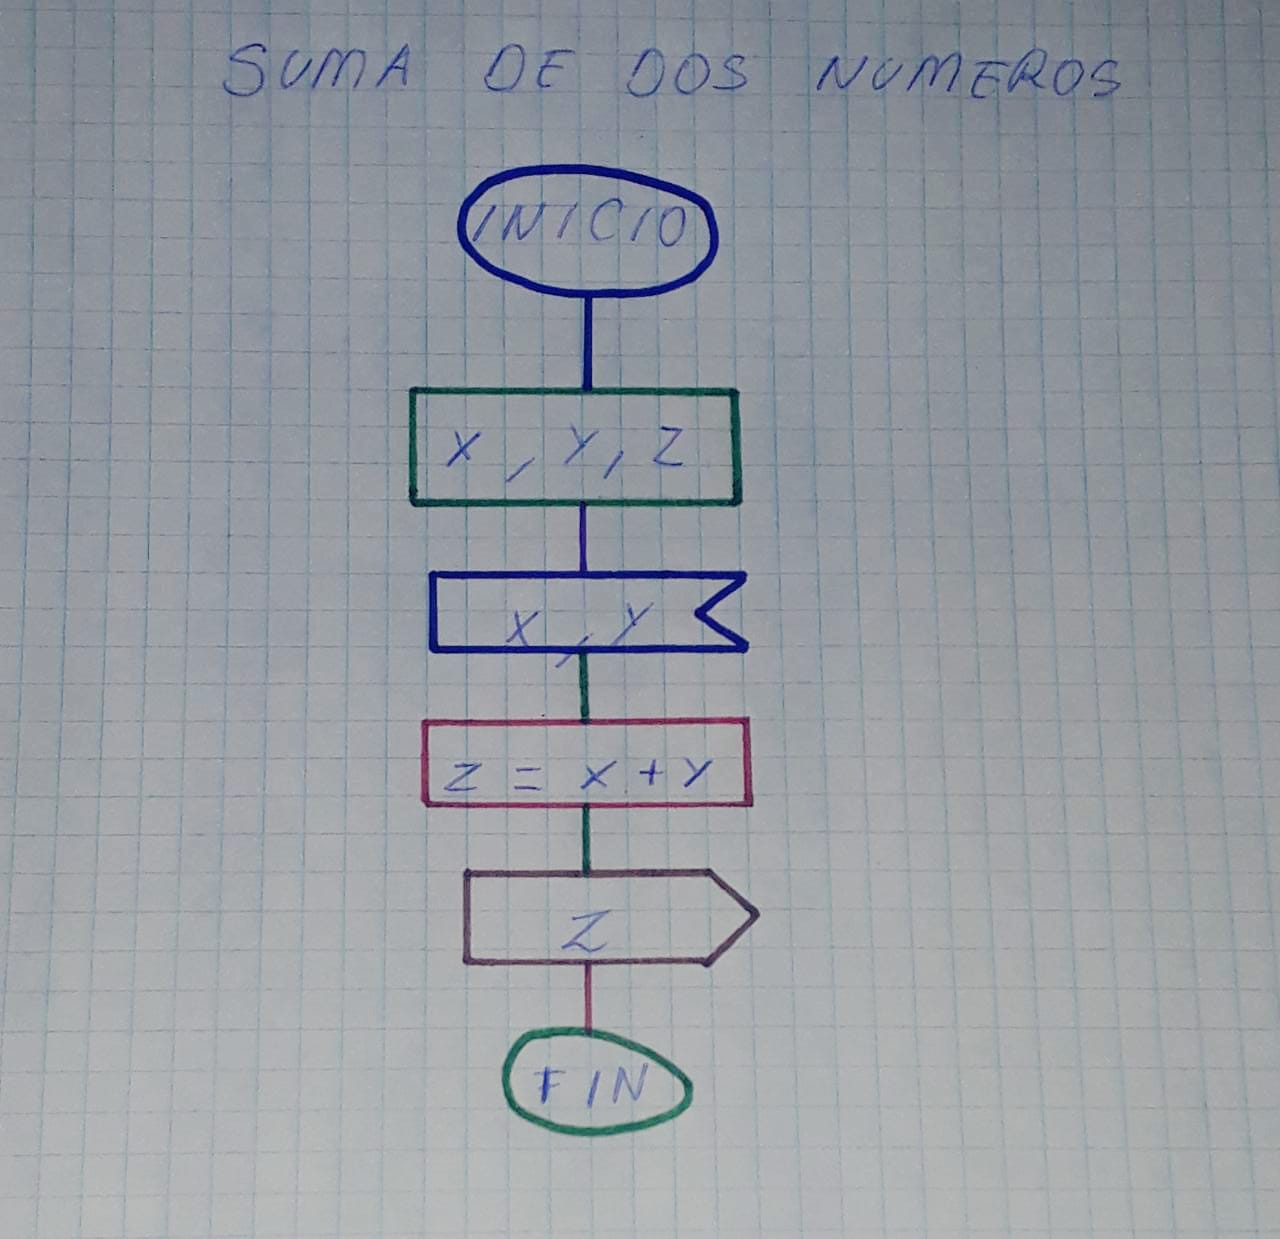 SUMA DE DOS NUMEROS
INICIO
X, Y, Z
X, Y
Z = X + Y
Z
FIN